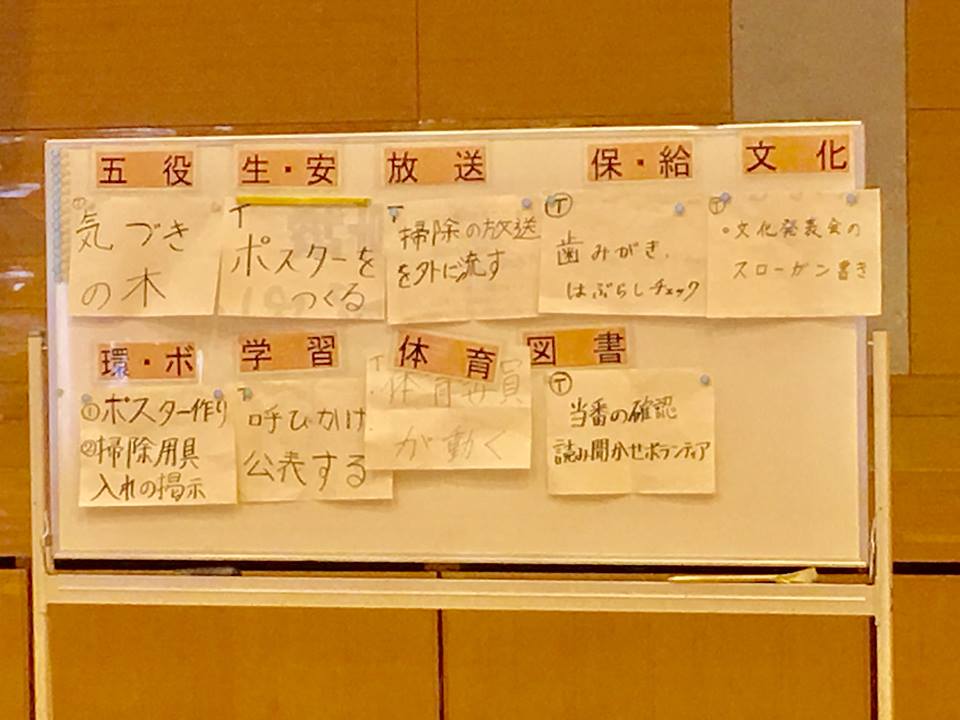 五役
気づき
の木
生・安
ポスターを
つくる
放送
掃除の放送
を外に流す
保・給
Ⓣ
歯みがき、
はぶらしチェック
文化
Ⓣ
・文化発表会の
スローガン書き
環・ボ
①ポスター作り
②掃除用具
入れの掲示
学習
呼びかけ
公表する
体育
体育委員
が動く
図書
Ⓣ
当番の確認
読み聞かせボランティア